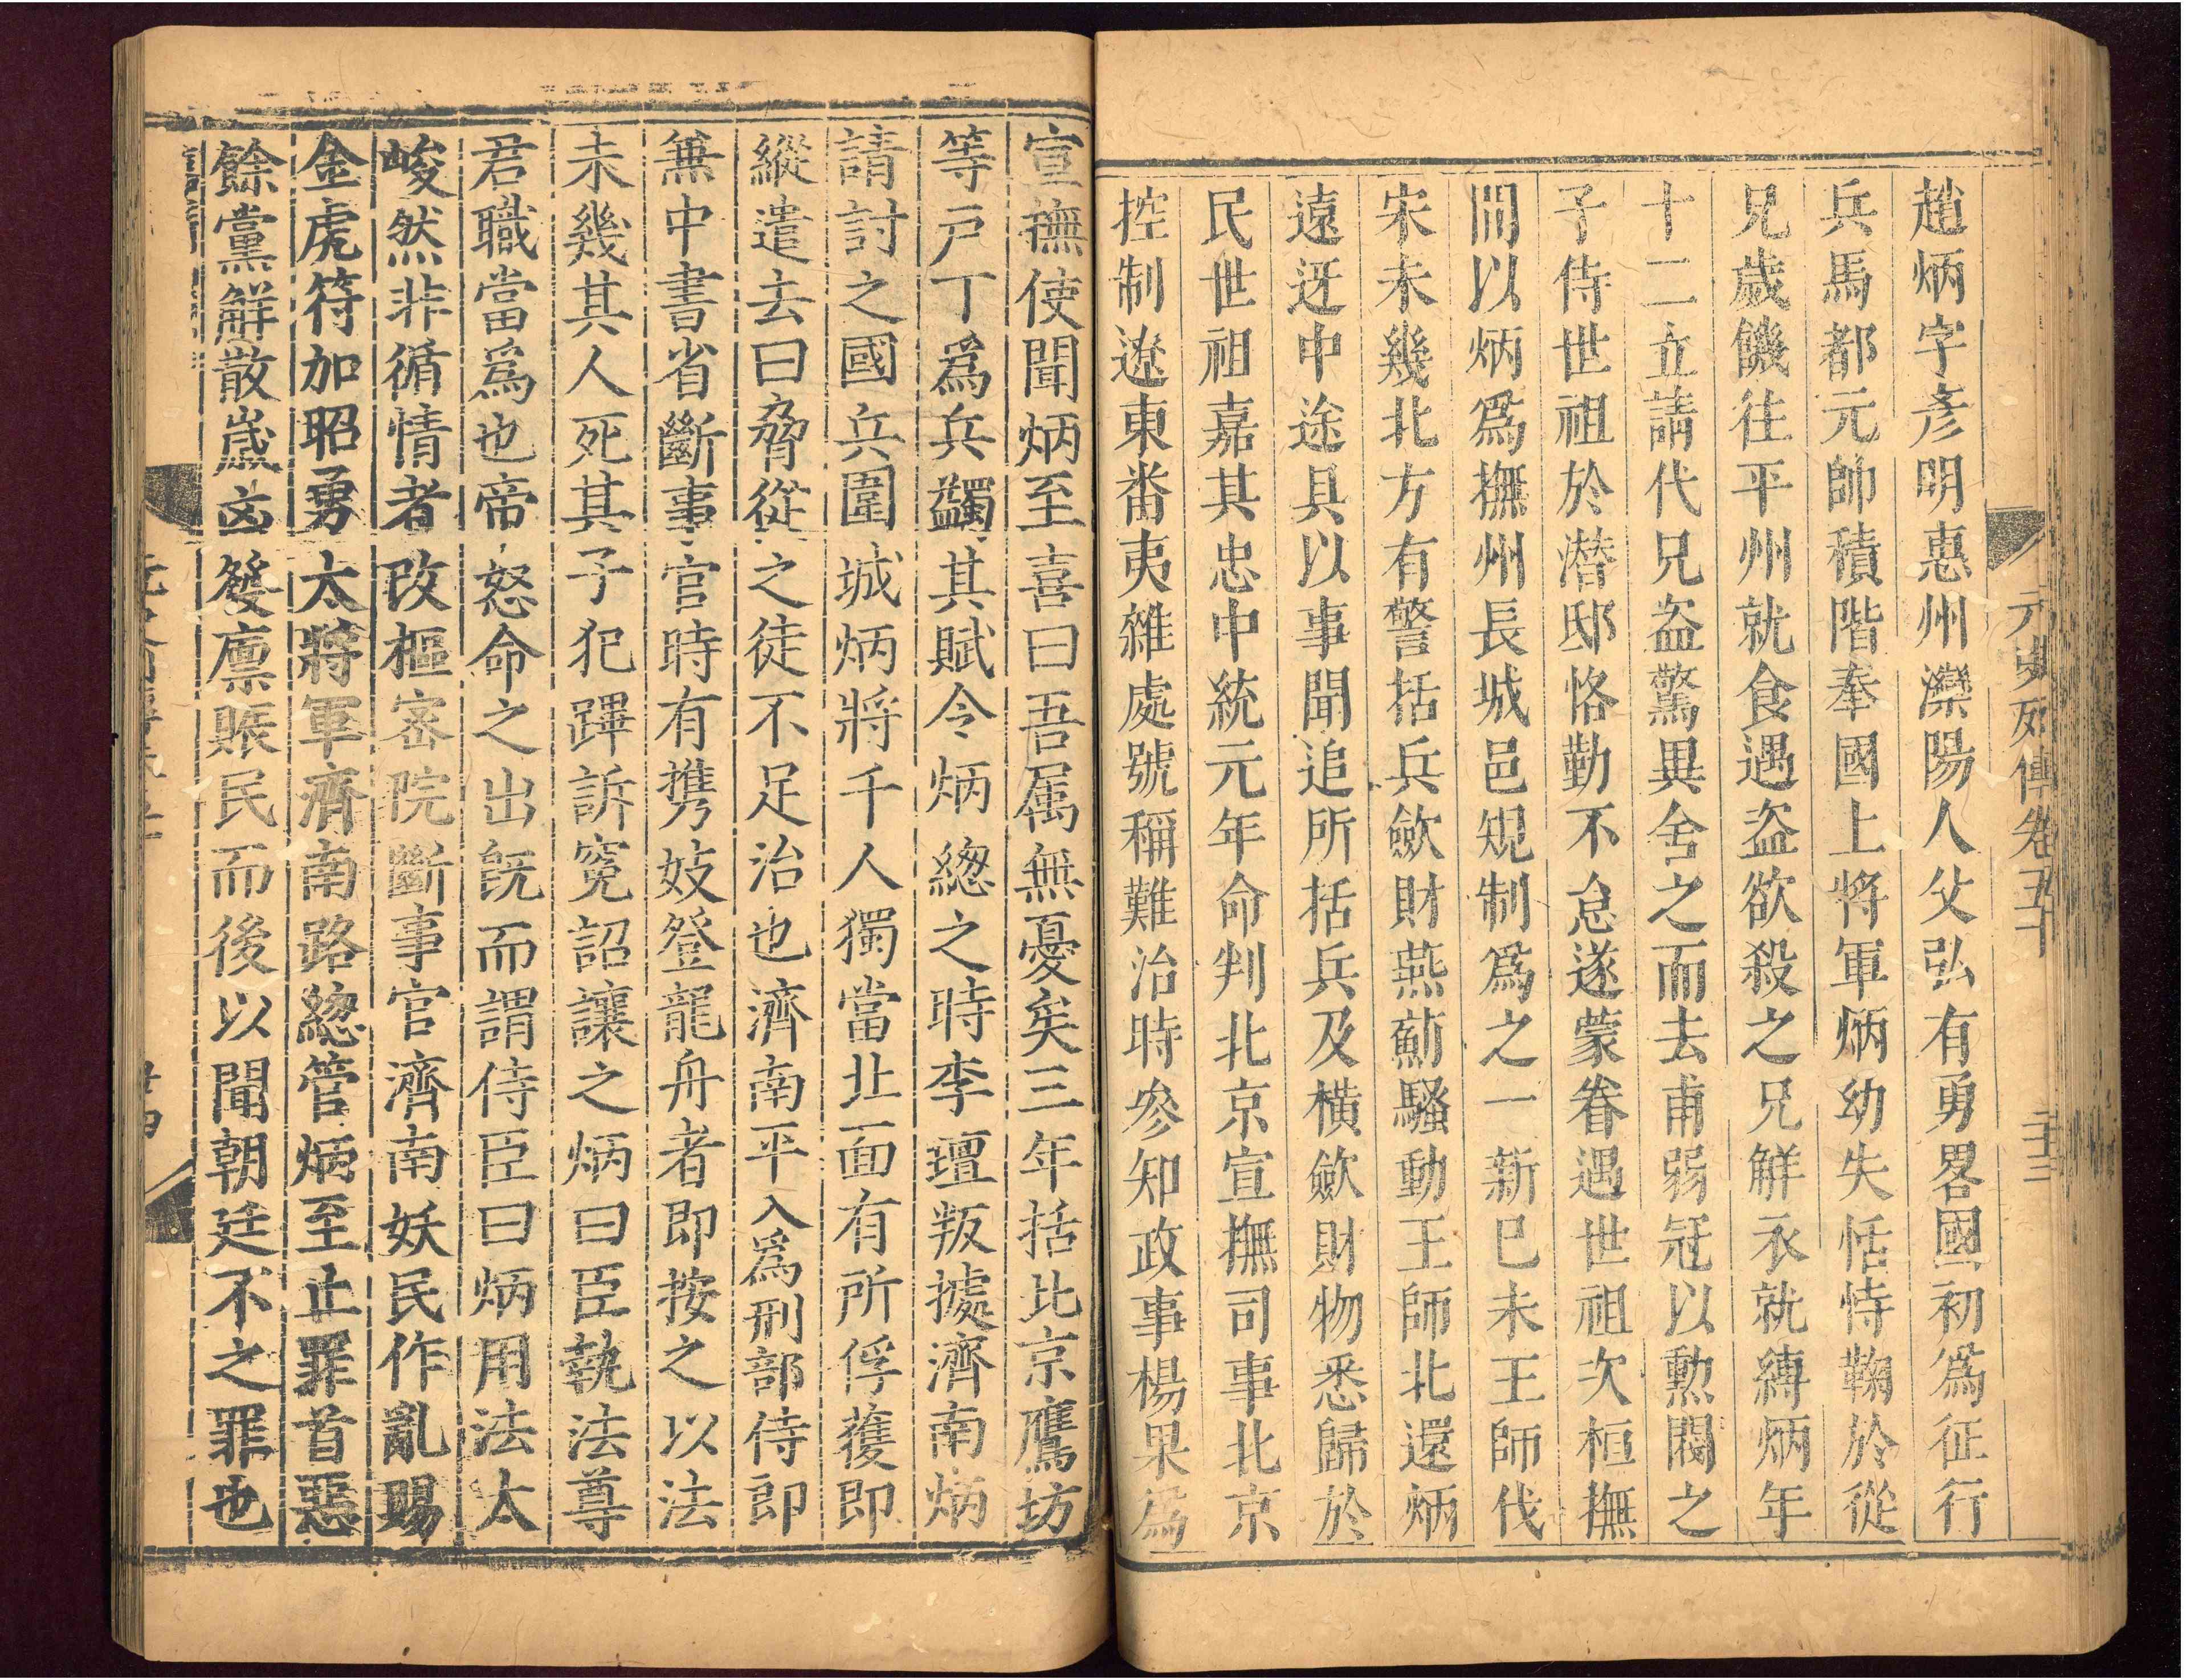 元史列傳卷五十
二十三
趙炳字彥明惠州灤陽人父弘有勇畧國初爲征行
兵馬都元帥積階奉國上將軍炳幼失恬恃鞠於從
兄歲饑往平州就食遇盗欲殺之兄解衣就縛炳年
十二立請代兄盗驚異舍之而去甫弱冠以勲閥之
子侍世祖於潜邸恪勤不怠遂蒙眷遇世祖次桓撫
間以炳爲撫州長城邑規制爲之一新巳未王師伐
宋未幾北方有警括兵斂財燕薊騷動王師北還炳
遠迓中途具以事聞追所括兵及橫斂財物悉歸於
民世祖嘉其忠中統元年命判北京宣撫司事北京
控制遼東番夷雜處號稱難治時參知政事楊果爲
宣撫使聞炳至喜曰吾属無憂矣三年括北京鷹坊
等戸丁爲兵蠲其賦令炳緫之時李璮叛據濟南炳
請討之國兵圍城炳將千人獨當北面有所俘獲即
縱遣去曰脅從之徒不足治也濟南平入爲刑部侍郎
兼中書省斷事官時有携妓登龍舟者即按之以法
未幾其人死其子犯蹕訴寃詔讓之炳曰臣執法尊
君職當爲也帝怒命之出旣而謂侍臣曰炳用法太
峻然非循情者改樞密院斷事官濟南妖民作亂賜
金虎符加昭勇大將軍濟南路緫管炳至止罪首惡
餘黨解散歲凶發廪賑民而後以聞朝廷不之罪也